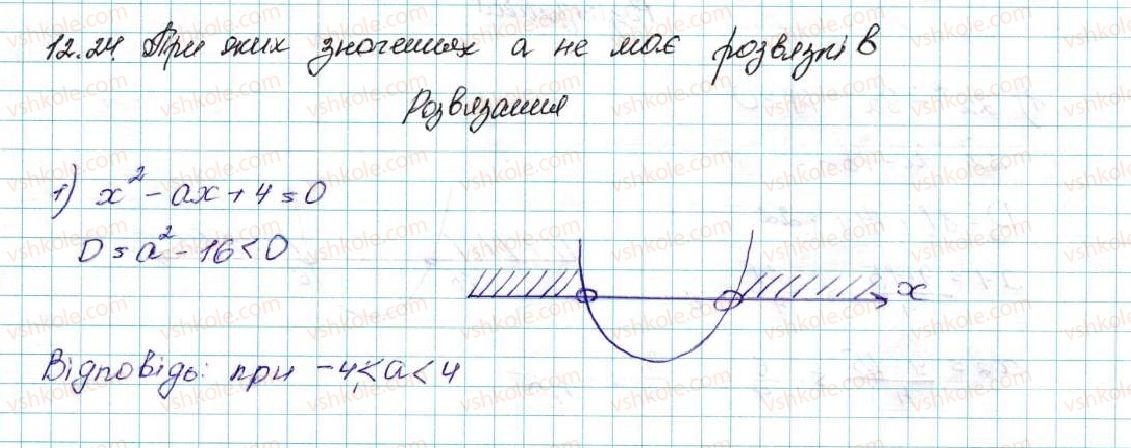 12.24. При яких значеннях а не має розвязків
Розвязання
1) x² - ax + 4 = 0
D = a² - 16 < 0
x
Відповідь: при -4 < a < 4